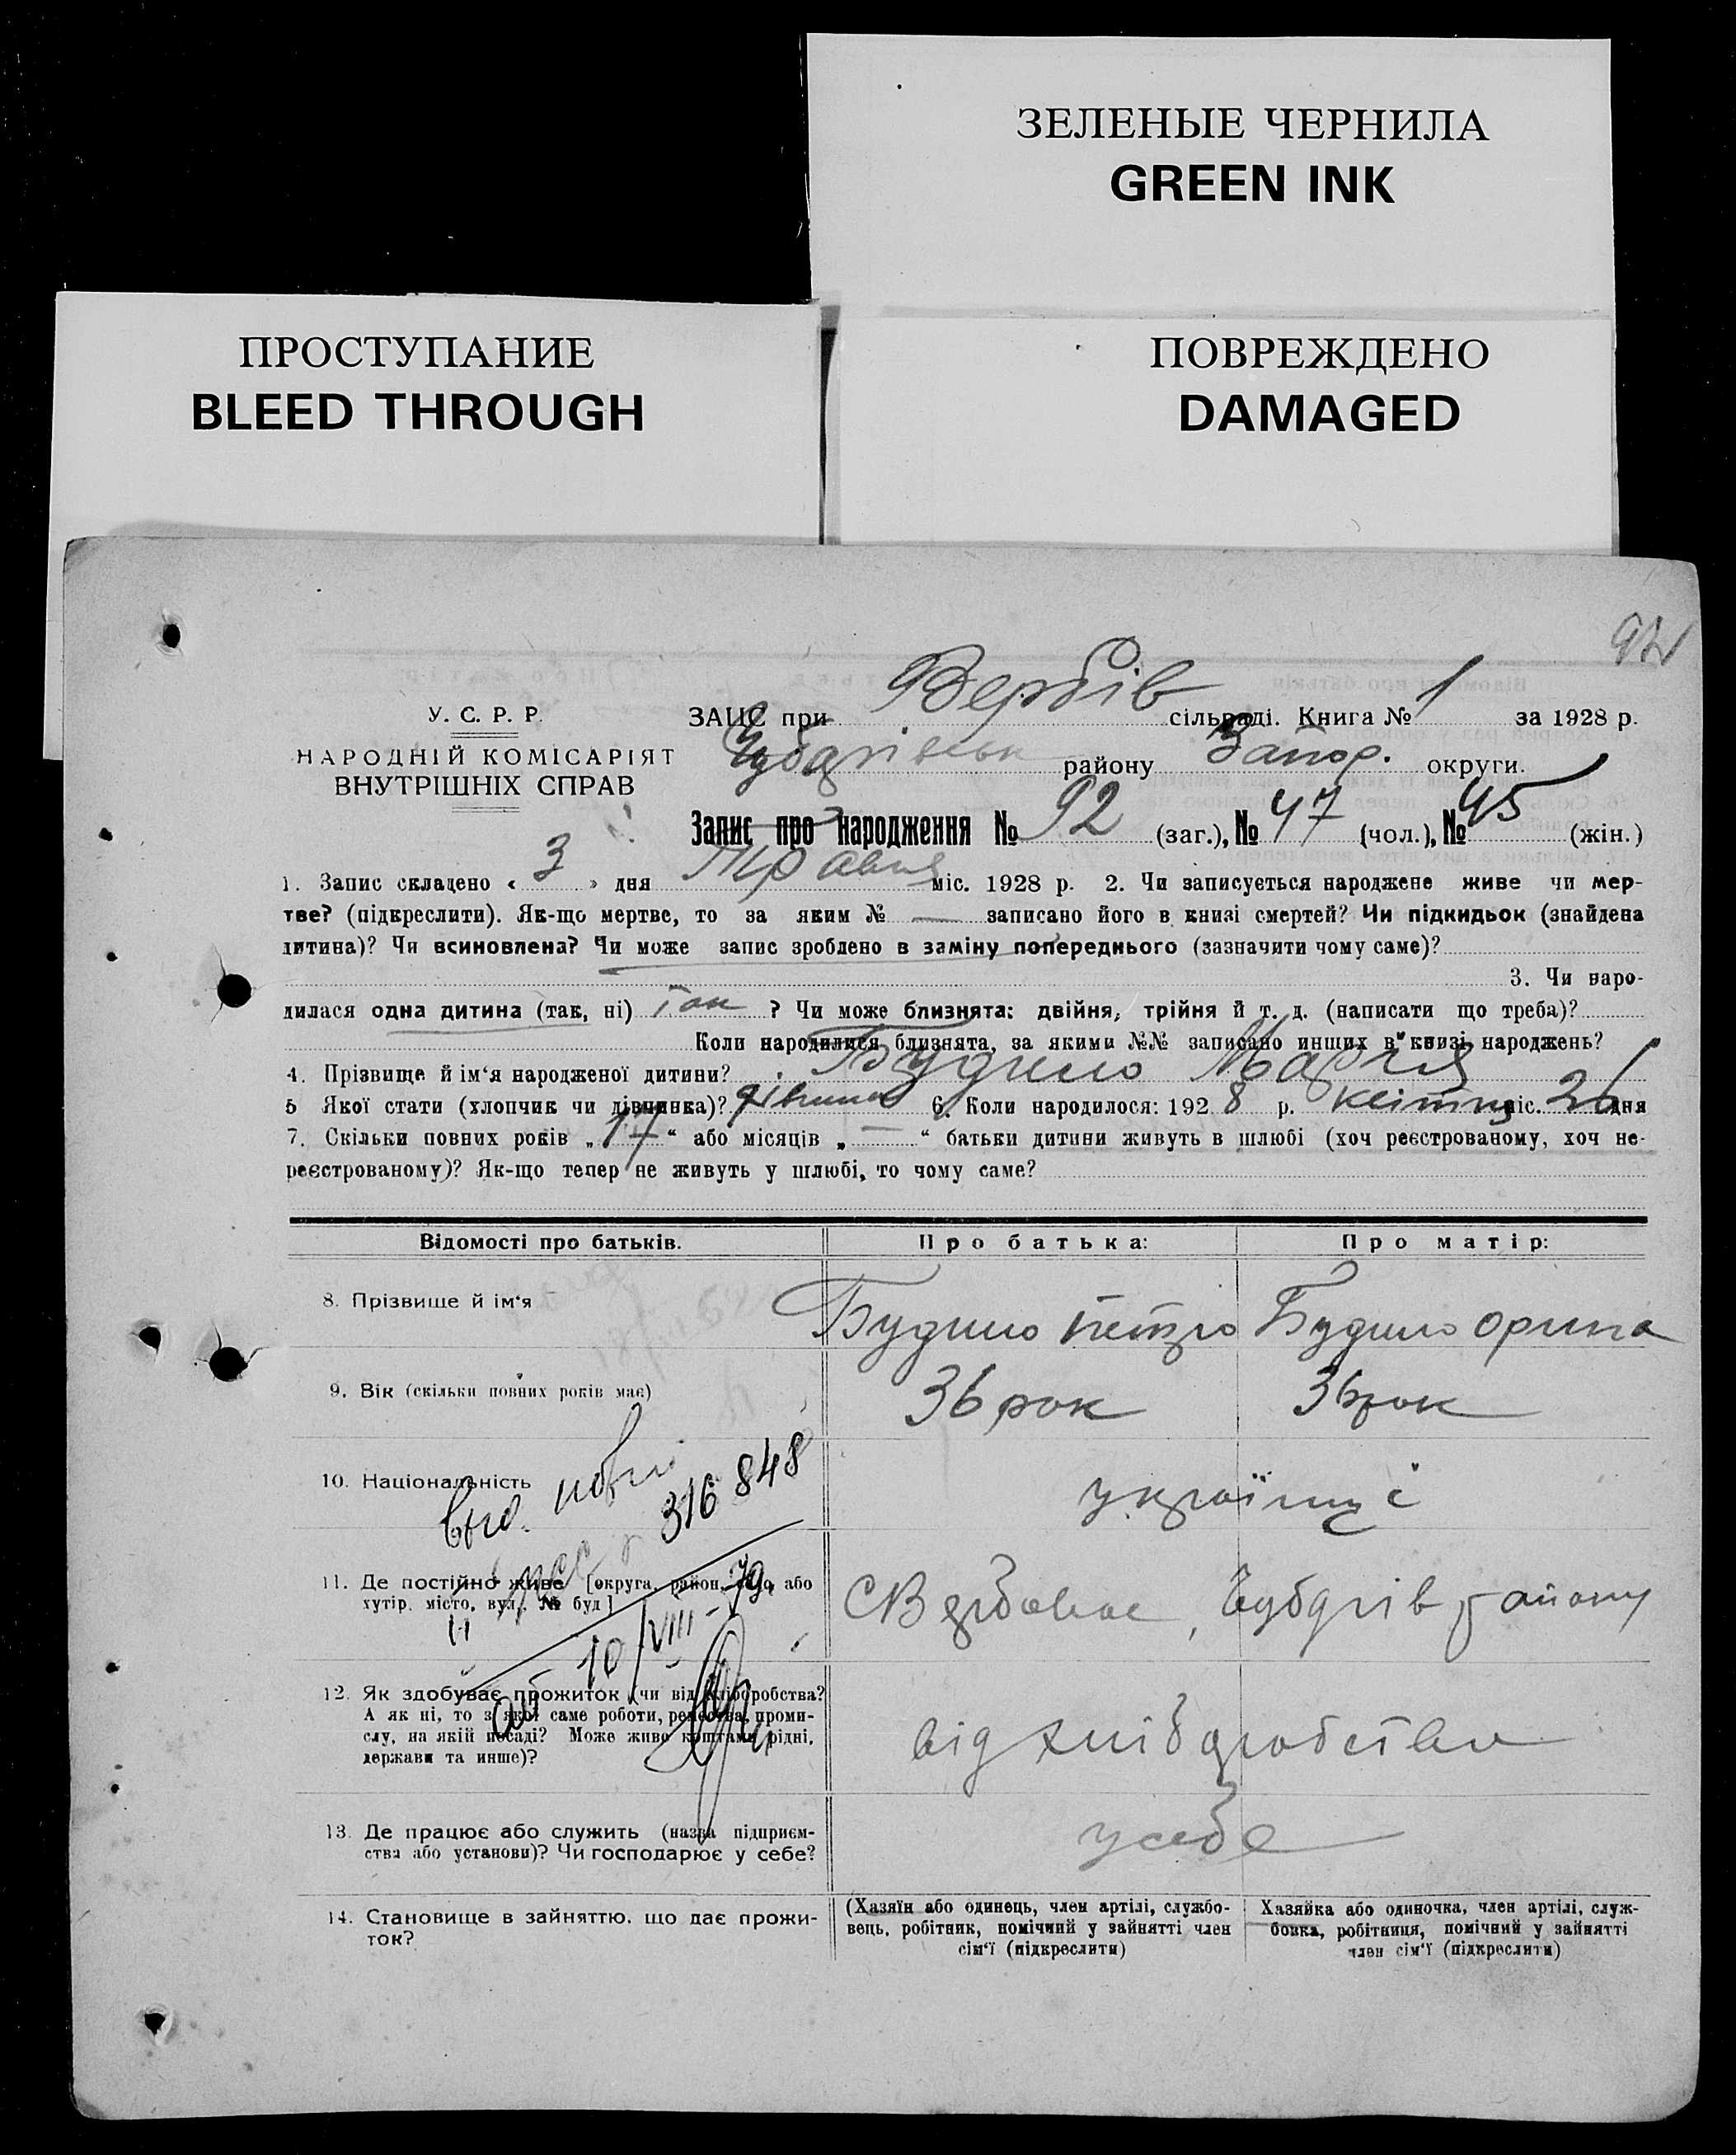 ЗЕЛЕНЫЕ ЧЕРНИЛА
GREEN INK
ПРОСТУПАНИЕ
BLEED THROUGH
ПОВРЕЖДЕНО
DAMAGED
У. С. Р. Р.
НАРОДНІЙ КОМІСАРІЯТ
ВНУТРІШНІХ СПРАВ
ЗАЦС при Вербів сільраді. Книга № 1 за 1928 р.
району Запор. округи.
Запис про народження № 92 (заг.), № 47 (чол.), № 45 (жін.)
1. Запис складено « 3 » дня Травня міс. 1928 р. 2. Чи записується народжене живе чи мер-
тве? (підкреслити). Як-що мертве, то за яким № — записано його в книзі смертей? Чи підкидьок (знайдена
дитина)? Чи всиновлена? Чи може запис зроблено в заміну попереднього (зазначити чому саме)?
3. Чи наро-
дилася одна дитина (так, ні) так ? Чи може близнята: двійня, трійня й т. д. (написати що треба)?
Коли народилися близнята, за якими №№ записано инших в книзі народжень?
4. Прізвище й ім'я народженої дитини? Будило Марія
5 Якої стати (хлопчик чи дівчинка)? дівчинка 6. Коли народилося: 192 8 р. квітня міс. 26 дня
7. Скільки повних років „ 17 “ або місяців „ — “ батьки дитини живуть в шлюбі (хоч реєстрованому, хоч не-
реєстрованому)? Як-що тепер не живуть у шлюбі, то чому саме?
Відомості про батьків. Про батька: Про матір:
8. Прізвище й ім'я Будило Петро Будило Орина
9. Вік (скільки повних років має) 36 рок 36 рок
10. Національність українці
316 848
11. Де постійно живе [округа, район, село або
хутір, місто, вул., № буд]
С Вербове, Чубарів району
10/VIII-79
12. Як здобуває прожиток (чи від хліборобства?
А як ні, то з якої саме роботи, ремества, проми-
слу, на якій посаді? Може живе коштами рідні,
держави та инше)?
від хліборобства
13. Де працює або служить (назва підприєм-
ства або установи)? Чи господарює у себе?
у себе
14. Становище в зайняттю, що дає прожи-
ток?
(Хазяїн або одинець, член артілі, службо-
вець, робітник, помічний у зайнятті член
сім'ї (підкреслити)
Хазяйка або одиночка, член артілі, служ-
бовка, робітниця, помічний у зайнятті
член сім'ї (підкреслити)